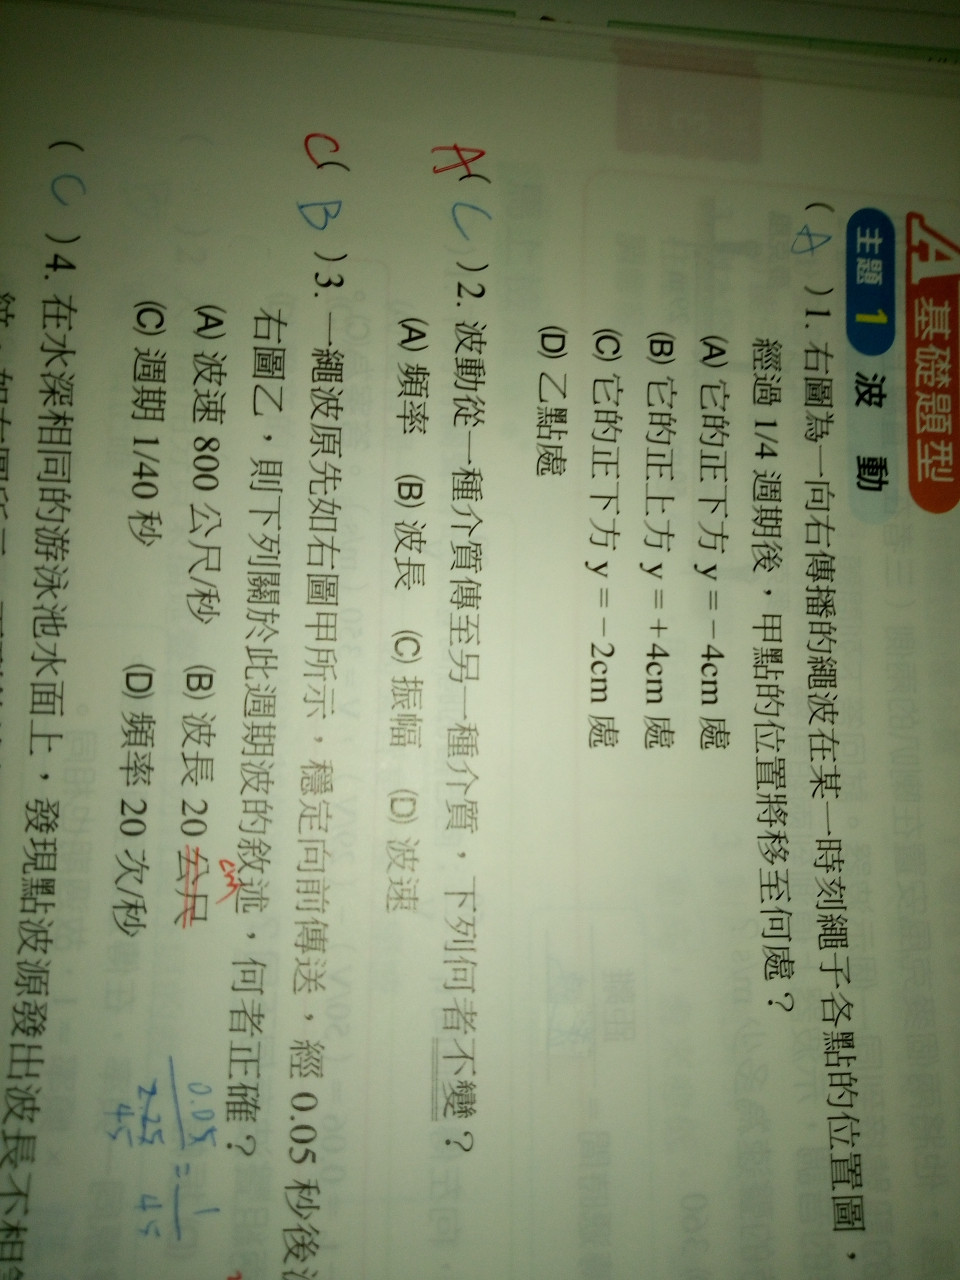 A 基礎題型
主題 1 波動
( A )1. 右圖為一向右傳播的繩波在某一時刻繩子各點的位置圖，
經過 1/4 週期後，甲點的位置將移至何處？
(A) 它的正下方 y=−4cm 處
(B) 它的正上方 y=+4cm 處
(C) 它的正下方 y=−2cm 處
(D) 乙點處
A( C )2. 波動從一種介質傳至另一種介質，下列何者不變？
(A) 頻率 (B) 波長 (C) 振幅 (D) 波速
C( B )3. 一繩波原先如右圖甲所示，穩定向前傳送，經 0.05 秒後
右圖乙，則下列關於此週期波的敘述，何者正確？
(A) 波速 800 公尺/秒 (B) 波長 20 公尺 cm
(C) 週期 1/40 秒 (D) 頻率 20 次/秒
0.05 = 1
2.25 45
45
( C )4. 在水深相同的游泳池水面上，發現點波源發出波長不相等